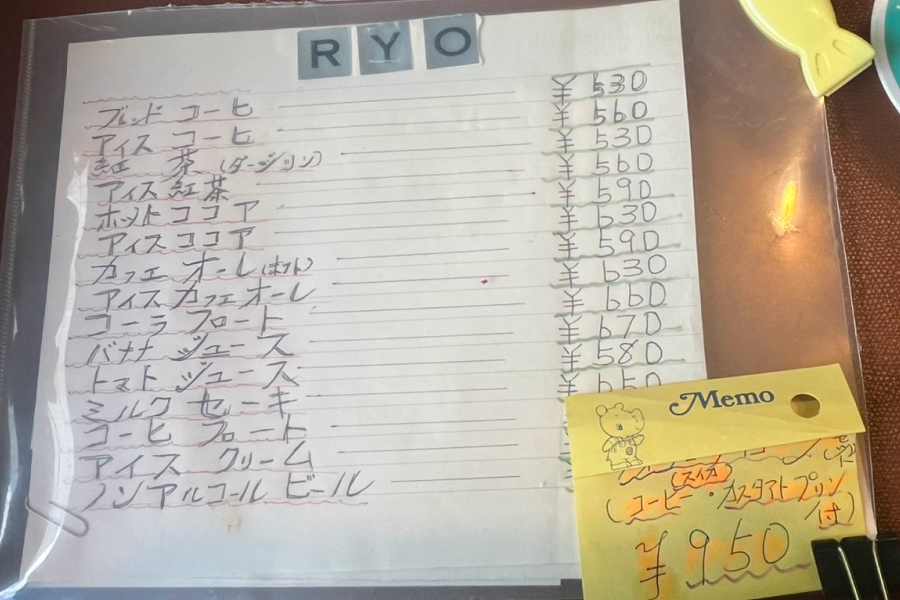 RYO
ブレンド コーヒ ¥530
アイス コーヒ ¥560
紅 茶 (ダージリン) ¥530
アイス 紅茶 ¥560
ホット ココア ¥590
アイス ココア ¥630
カフェ オーレ (ホット) ¥590
アイス カフェ オーレ ¥630
コーラ フロート ¥660
バナナ ジュース ¥670
トマト ジュース ¥580
ミルク セーキ ¥650
コーヒ フロート
アイス クリーム
ノンアルコール ビール
Memo
(スイカ)
(コーヒー・カスタアトプリン付)
¥950